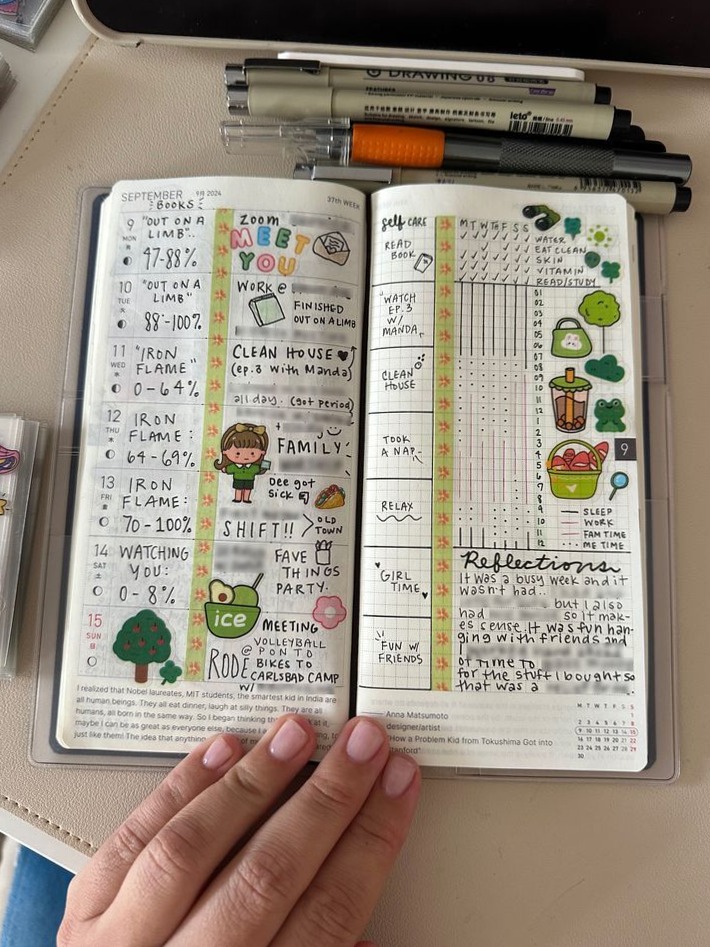 DRAWING 08
FEATURES
leto
SEPTEMBER 9月 2024
37th WEEK
BOOKS
9
MON
"OUT ON A
LIMB"..
47-88%
ZOOM
MEET
YOU
10
TUE
"OUT ON A
LIMB"
88-100%
WORK @
FINISHED
OUT ON A LIMB
11
WED
"IRON
FLAME"
0-64%
CLEAN HOUSE
(ep. 3 with Manda)
all day.. (got period)
12
THU
IRON
FLAME:
64-69%
+ FAMILY!
13
FRI
IRON
FLAME:
70-100%
Dee got
sick
SHIFT!! >
OLD
TOWN
14
SAT
WATCHING
YOU:
0-8%
FAVE
THINGS
PARTY.
ice
15
SUN
日
MEETING
VOLLEYBALL
@ PONTO
RODE BIKES TO
CARLSBAD CAMP
W/
I realized that Nobel laureates, MIT students, the smartest kid in India are
all human beings. They all eat dinner, laugh at silly things. They are all
humans, all born in the same way. So I began thinking
maybe I can be as great as everyone else, because I a
just like them! The idea that anything
self CARE
M T W TH F S S
WATER
EAT CLEAN
SKIN
VITAMIN
READ/STUDY
READ
BOOK
"WATCH
EP. 3
W/
MANDA"
CLEAN
HOUSE
TOOK
A NAP
RELAX
GIRL
TIME
"FUN W/
FRIENDS
01
02
03
04
05
06
07
08
09
10
11
12
1
2
3
4
5
6
7
8
9
10
11
12
9
SLEEP
WORK
FAM TIME
ME TIME
Reflections
It was a busy week and it
wasn't had..
but I also
had so it mak-
es sense. It was fun han-
ging with friends and
of time to
for the stuff I bought so
that was a
Anna Matsumoto
designer/artist
"How a Problem Kid from Tokushima Got into
Stanford"
M T W T F S S
1
2 3 4 5 6 7 8
9 10 11 12 13 14 15
16 17 18 19 20 21 22
23 24 25 26 27 28 29
30